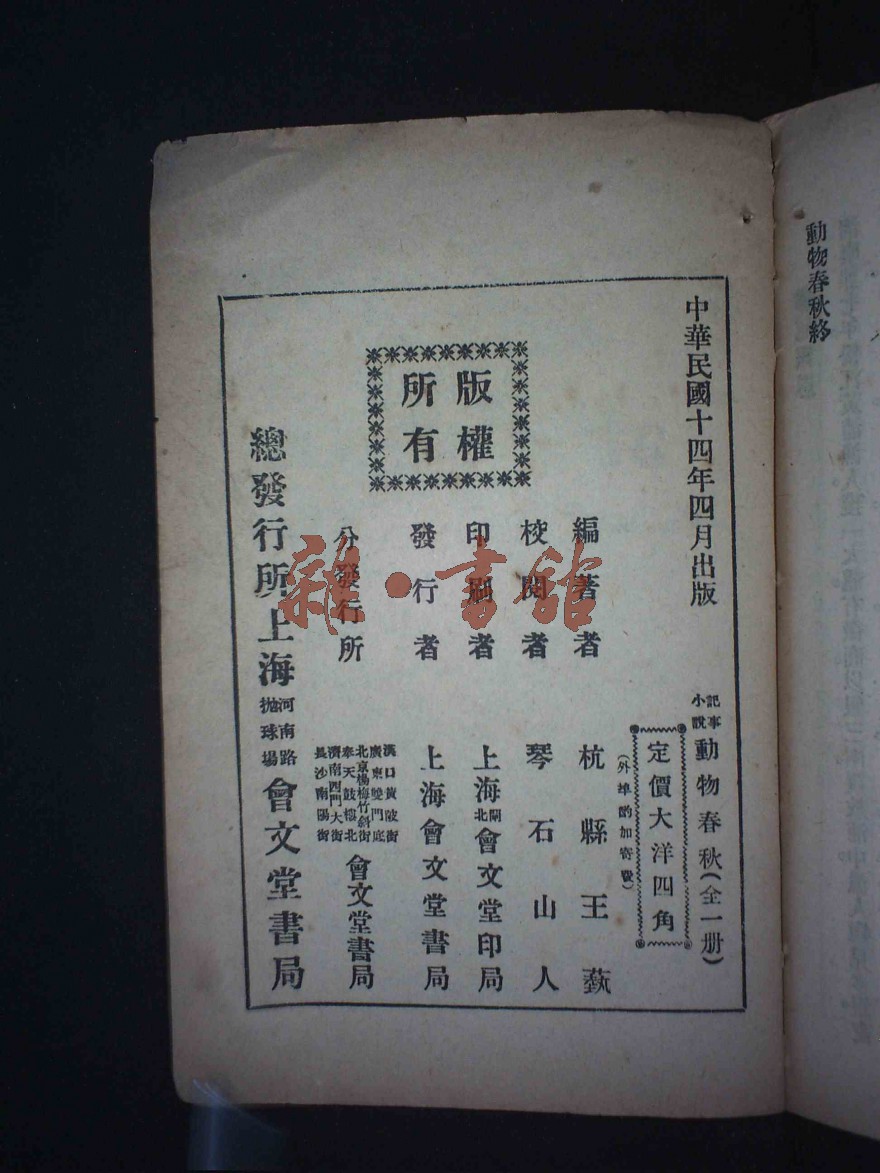 動物春秋終
中華民國十四年四月出版
記事小說 動物春秋（全一册）
定價大洋四角
（外埠酌加寄費）
編著者 杭縣王蓺
校閱者 琴石山人
印刷者 上海閘北會文堂印局
發行者 上海會文堂書局
分發行所
漢口黃陂街
廣東雙門底
北京楊梅竹斜街
奉天鼓樓北
濟南西門大街
長沙南陽街
會文堂書局
版權所有
總發行所上海河南路拋球場會文堂書局
雜·書館